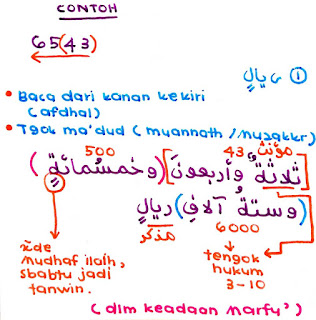 CONTOH
65(43)
① ى ريالٍ
• Baca dari kanan ke kiri
(afdhal)
• Tgok ma'dud (muannath / muzakkr)
500 43 مؤنث
[ثلاثةٌ وأربعونَ] (وخمسُمائةٍ)
(وستةُ آلافِ) ريالٍ
مذكر 6000
xde
mudhaf ilaih,
sbabtu jadi
tanwin.
tengok
hukum
3-10
(dlm keadaan marfu')